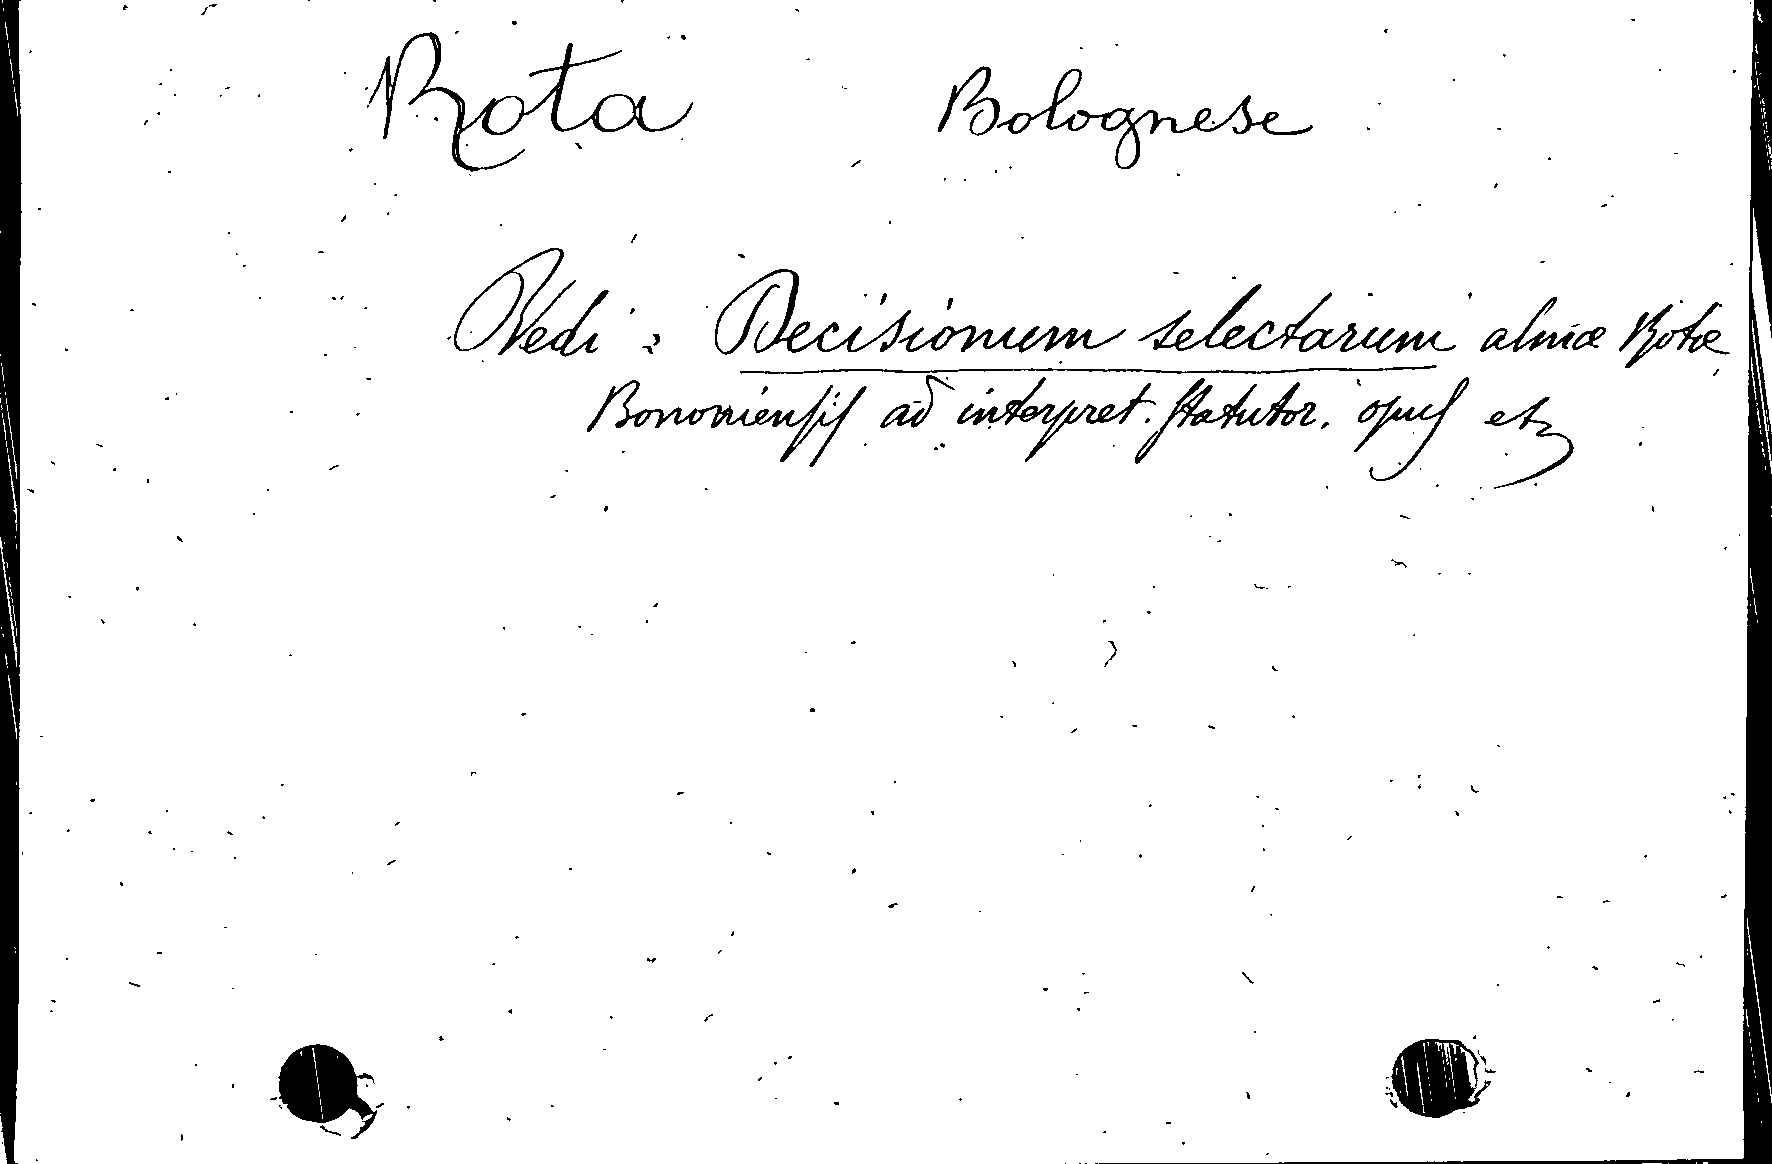 Rota Bolognese
Vedi : Decisionum selectarum almæ Rotæ
Bononiensis ad interpret. statutor. opus etc